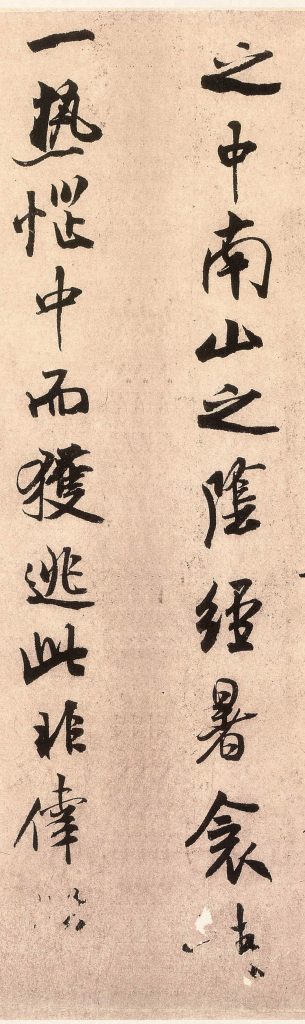 之中南山之陰經暑衾
一熱惱中而獲逃此非倖